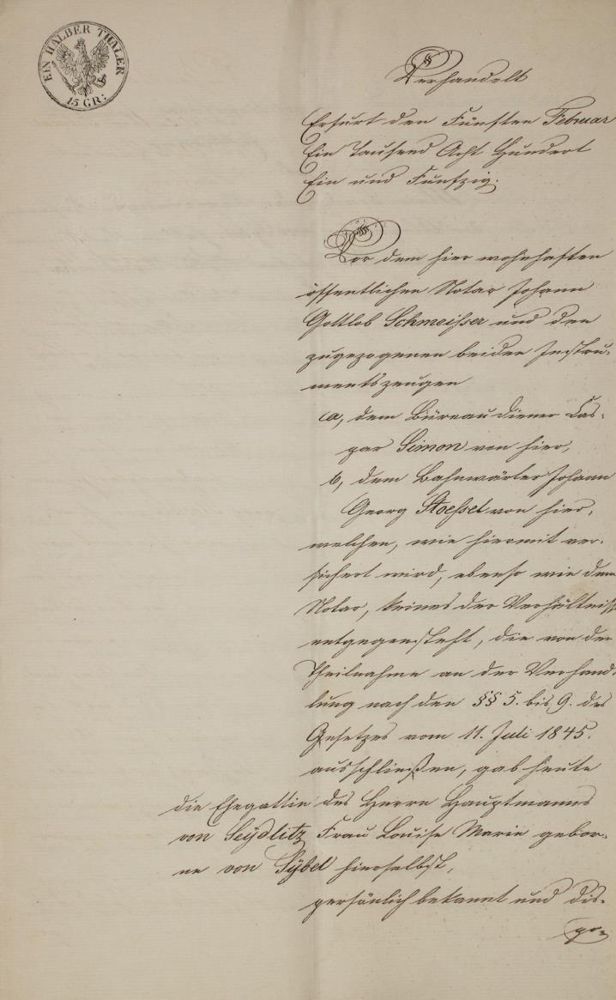 EIN HALBER THALER
15 GR:
Verhandelt
Erfurt den Fünften Februar
Ein Tausend Acht Hundert
Ein und Funfzig.
Vor dem hier wohnhaften
öffentlichen Notar Johann
Gottlob Schmeißer und den
zugezogenen beiden Instru-
mentszeugen
a, dem Büreaudiener Cas-
par Simon von hier,
b, dem Bahnwärter Johann
Georg Stoessel von hier,
welchen, wie hiermit ver-
sichert wird, ebenso wie dem
Notar, keines der Verhältniss
entgegensteht, die von der
Theilnahme an der Verhand-
lung nach den §§ 5. bis 9. des
Gesetzes vom 11. Juli 1845.
ausschließen, gab heute
die Ehegattin des Herrn Hauptmanns
von Seydlitz Frau Louise Marie gebor-
ne von Sybel hierselbst,
persönlich bekannt und dis-
po-